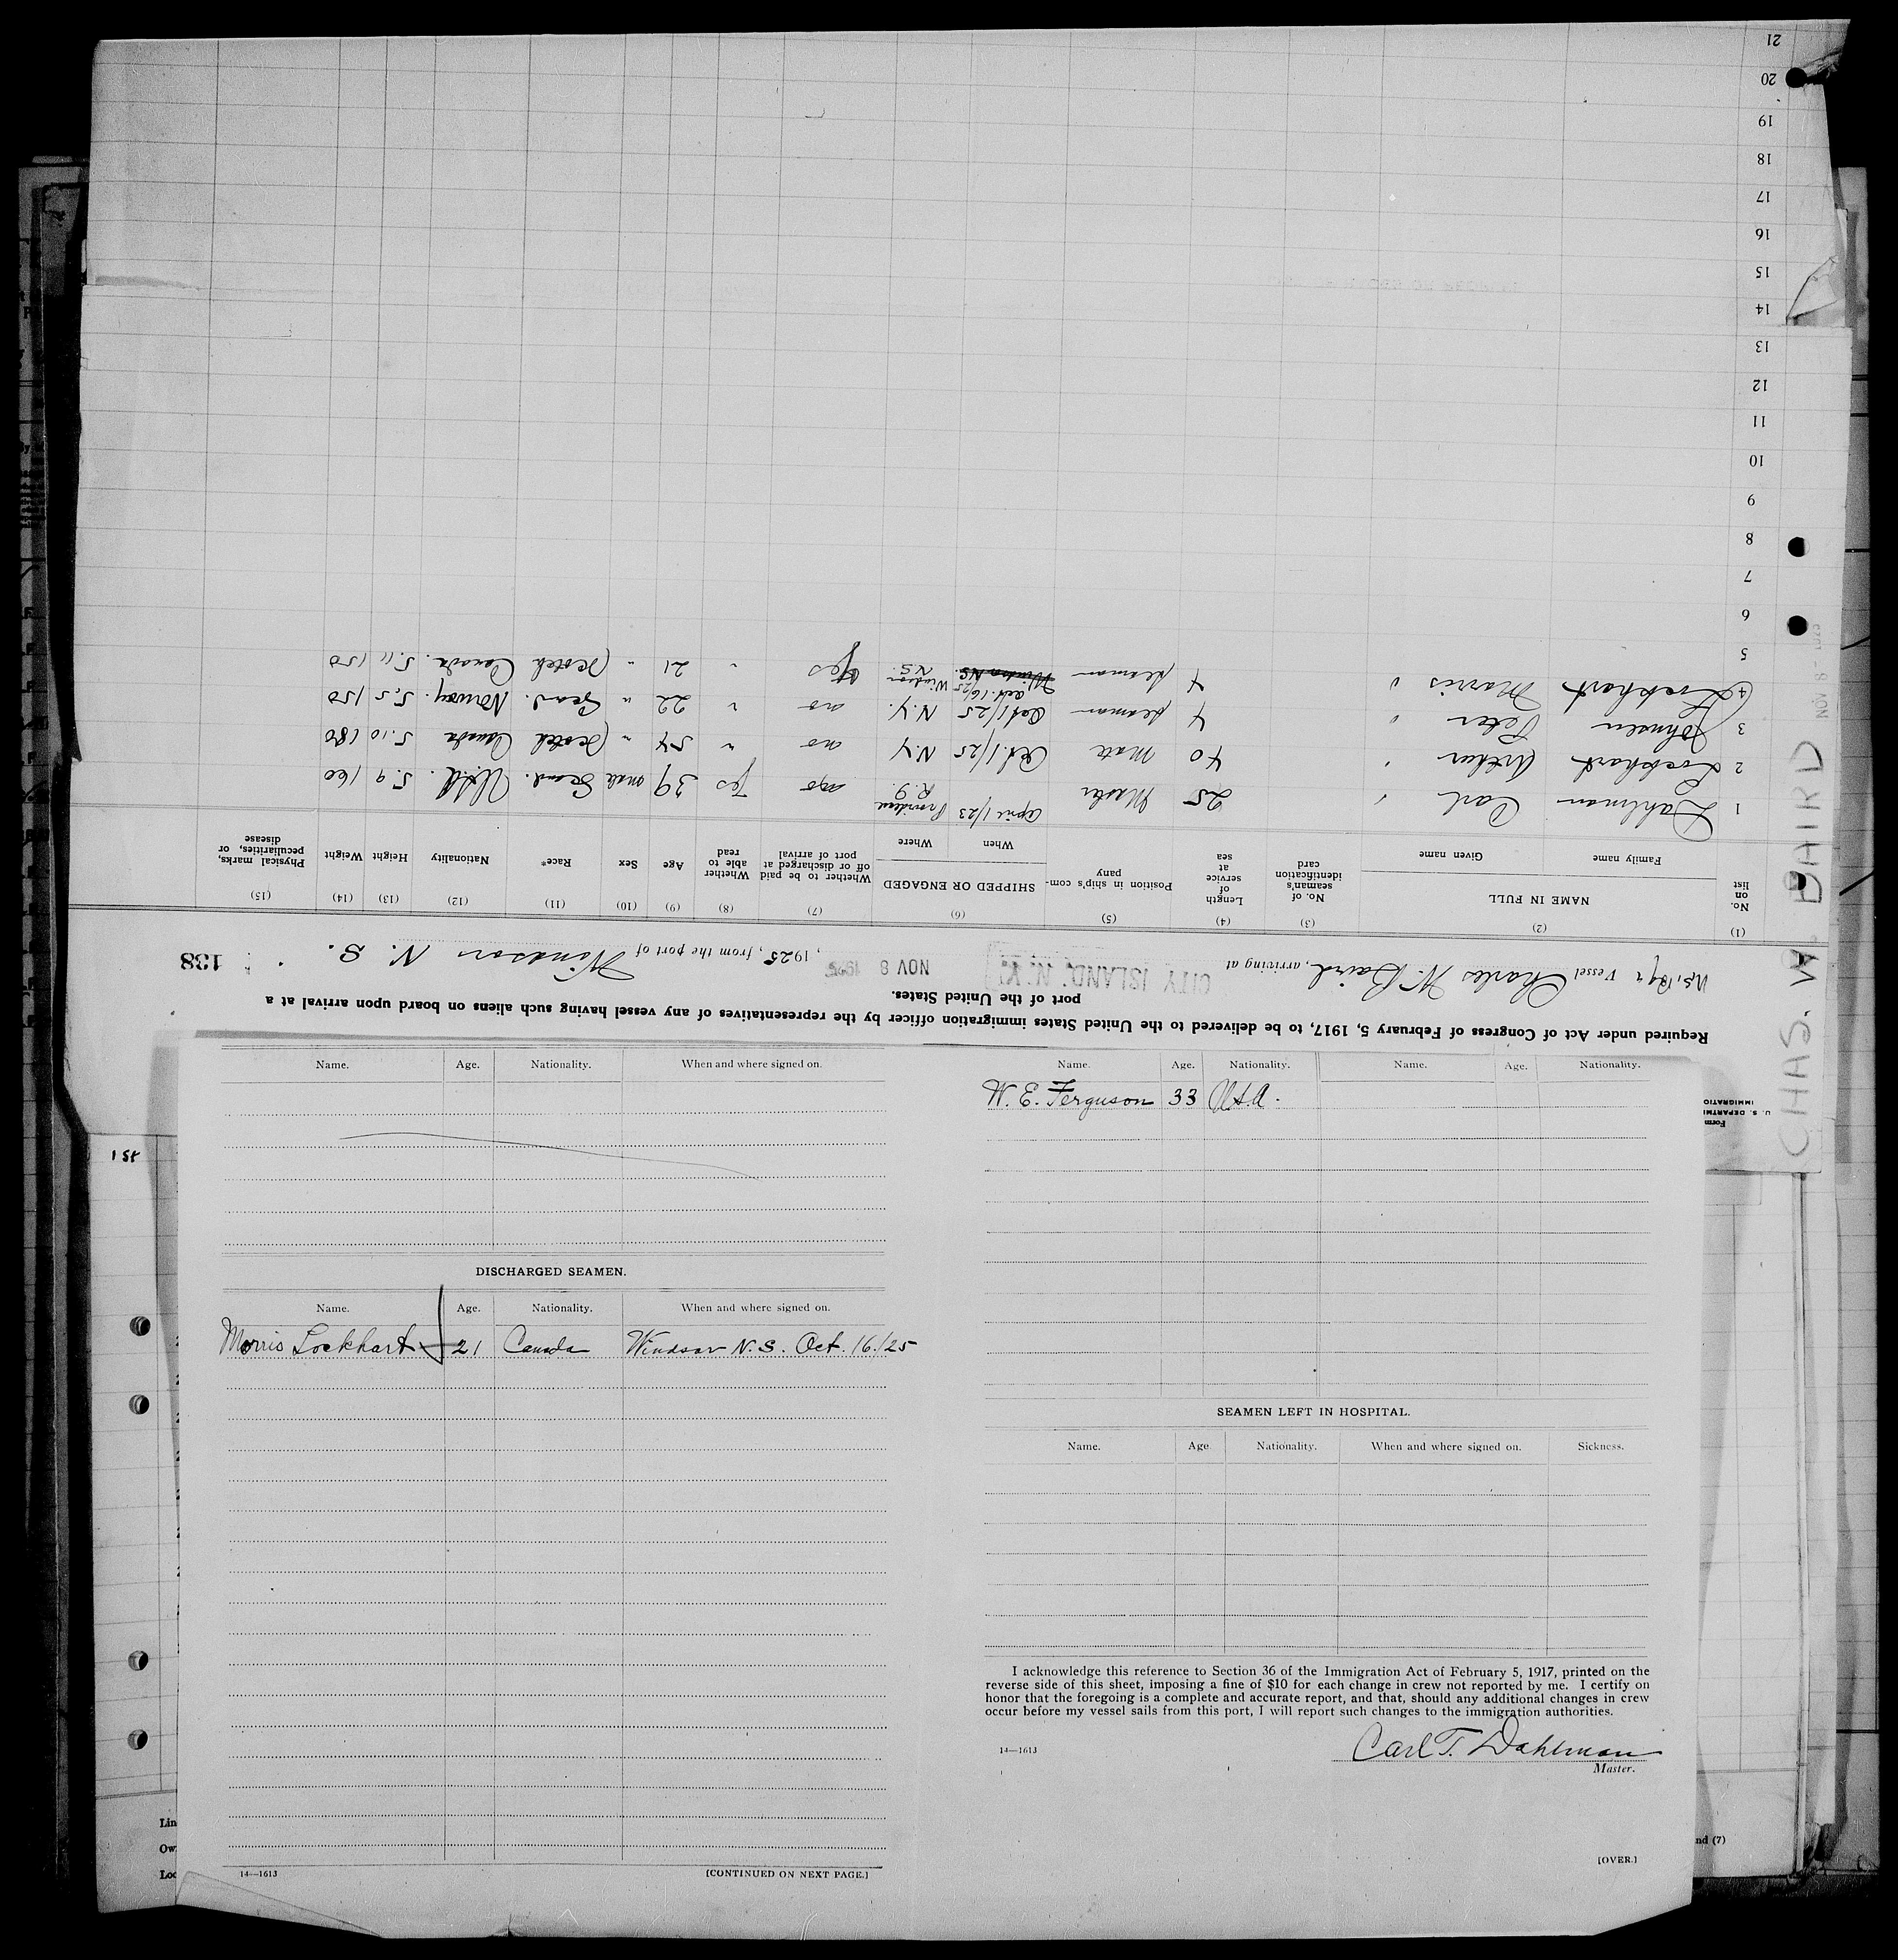 Required under Act of Congress of February 5, 1917, to be delivered to the United States immigration officer by the representatives of any vessel having such aliens on board upon arrival at a
port of the United States.
Vessel Charles W. Baird, arriving at CITY ISLAND, N.Y. NOV 8 1925, 1925, from the port of Windsor N. S. 138
(1) (2) (3) (4) (5) (6) (7) (8) (9) (10) (11) (12) (13) (14) (15)
No. on list NAME IN FULL Family name Given name No. of seaman's identification card Length of service at sea Position in ship's company SHIPPED OR ENGAGED When Where Whether to be paid off or discharged at port of arrival Whether able to read Age Sex Race* Nationality Height Weight Physical marks, peculiarities, or disease
1 Dahlman Carl 25 Master April 1/23 Providence R.I. no Yes 39 male Scand. U.S.A. 5.9 160
2 Lockhart Arthur 40 Mate Oct. 1/25 N.Y no " 54 " Scotch Canada 5.10 180
3 Johnsen Peter 4 seaman Oct 1/25 N.Y. no " 22 " Scand. Norway. 5.5 150
4 Lockhart Morris 4 seaman Windsor N.S. Oct. 16/25 Windsor N.S. Yes " 21 " Scotch Canada. 5.11 150
5
6
7
8
9
10
11
12
13
14
15
16
17
18
19
20
21
CHAS. W. BAIRD
NOV 8 -
Form
U. S. DEPARTM
IMMIGRATIO
1st
Name. Age. Nationality. When and where signed on.
DISCHARGED SEAMEN.
Name. Age. Nationality. When and where signed on.
Morris Lockhart 21 Canada Windsor N.S. Oct. 16/25
14—1613 [CONTINUED ON NEXT PAGE.]
Name. Age. Nationality. Name. Age. Nationality.
W. E. Ferguson 33 U.S.A.
SEAMEN LEFT IN HOSPITAL.
Name. Age. Nationality. When and where signed on. Sickness.
I acknowledge this reference to Section 36 of the Immigration Act of February 5, 1917, printed on the
reverse side of this sheet, imposing a fine of $10 for each change in crew not reported by me. I certify on
honor that the foregoing is a complete and accurate report, and that, should any additional changes in crew
occur before my vessel sails from this port, I will report such changes to the immigration authorities.
14—1613
Carl T. Dahlman
Master.
[OVER.]
Lin
Ow
Loc
nd (7)